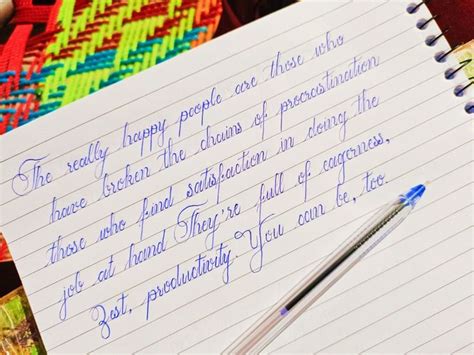 The really happy people are those who
have broken the chains of procrastination
those who find satisfaction in doing the
job at hand They're full of eagerness,
Zest, productivity. You can be, too.